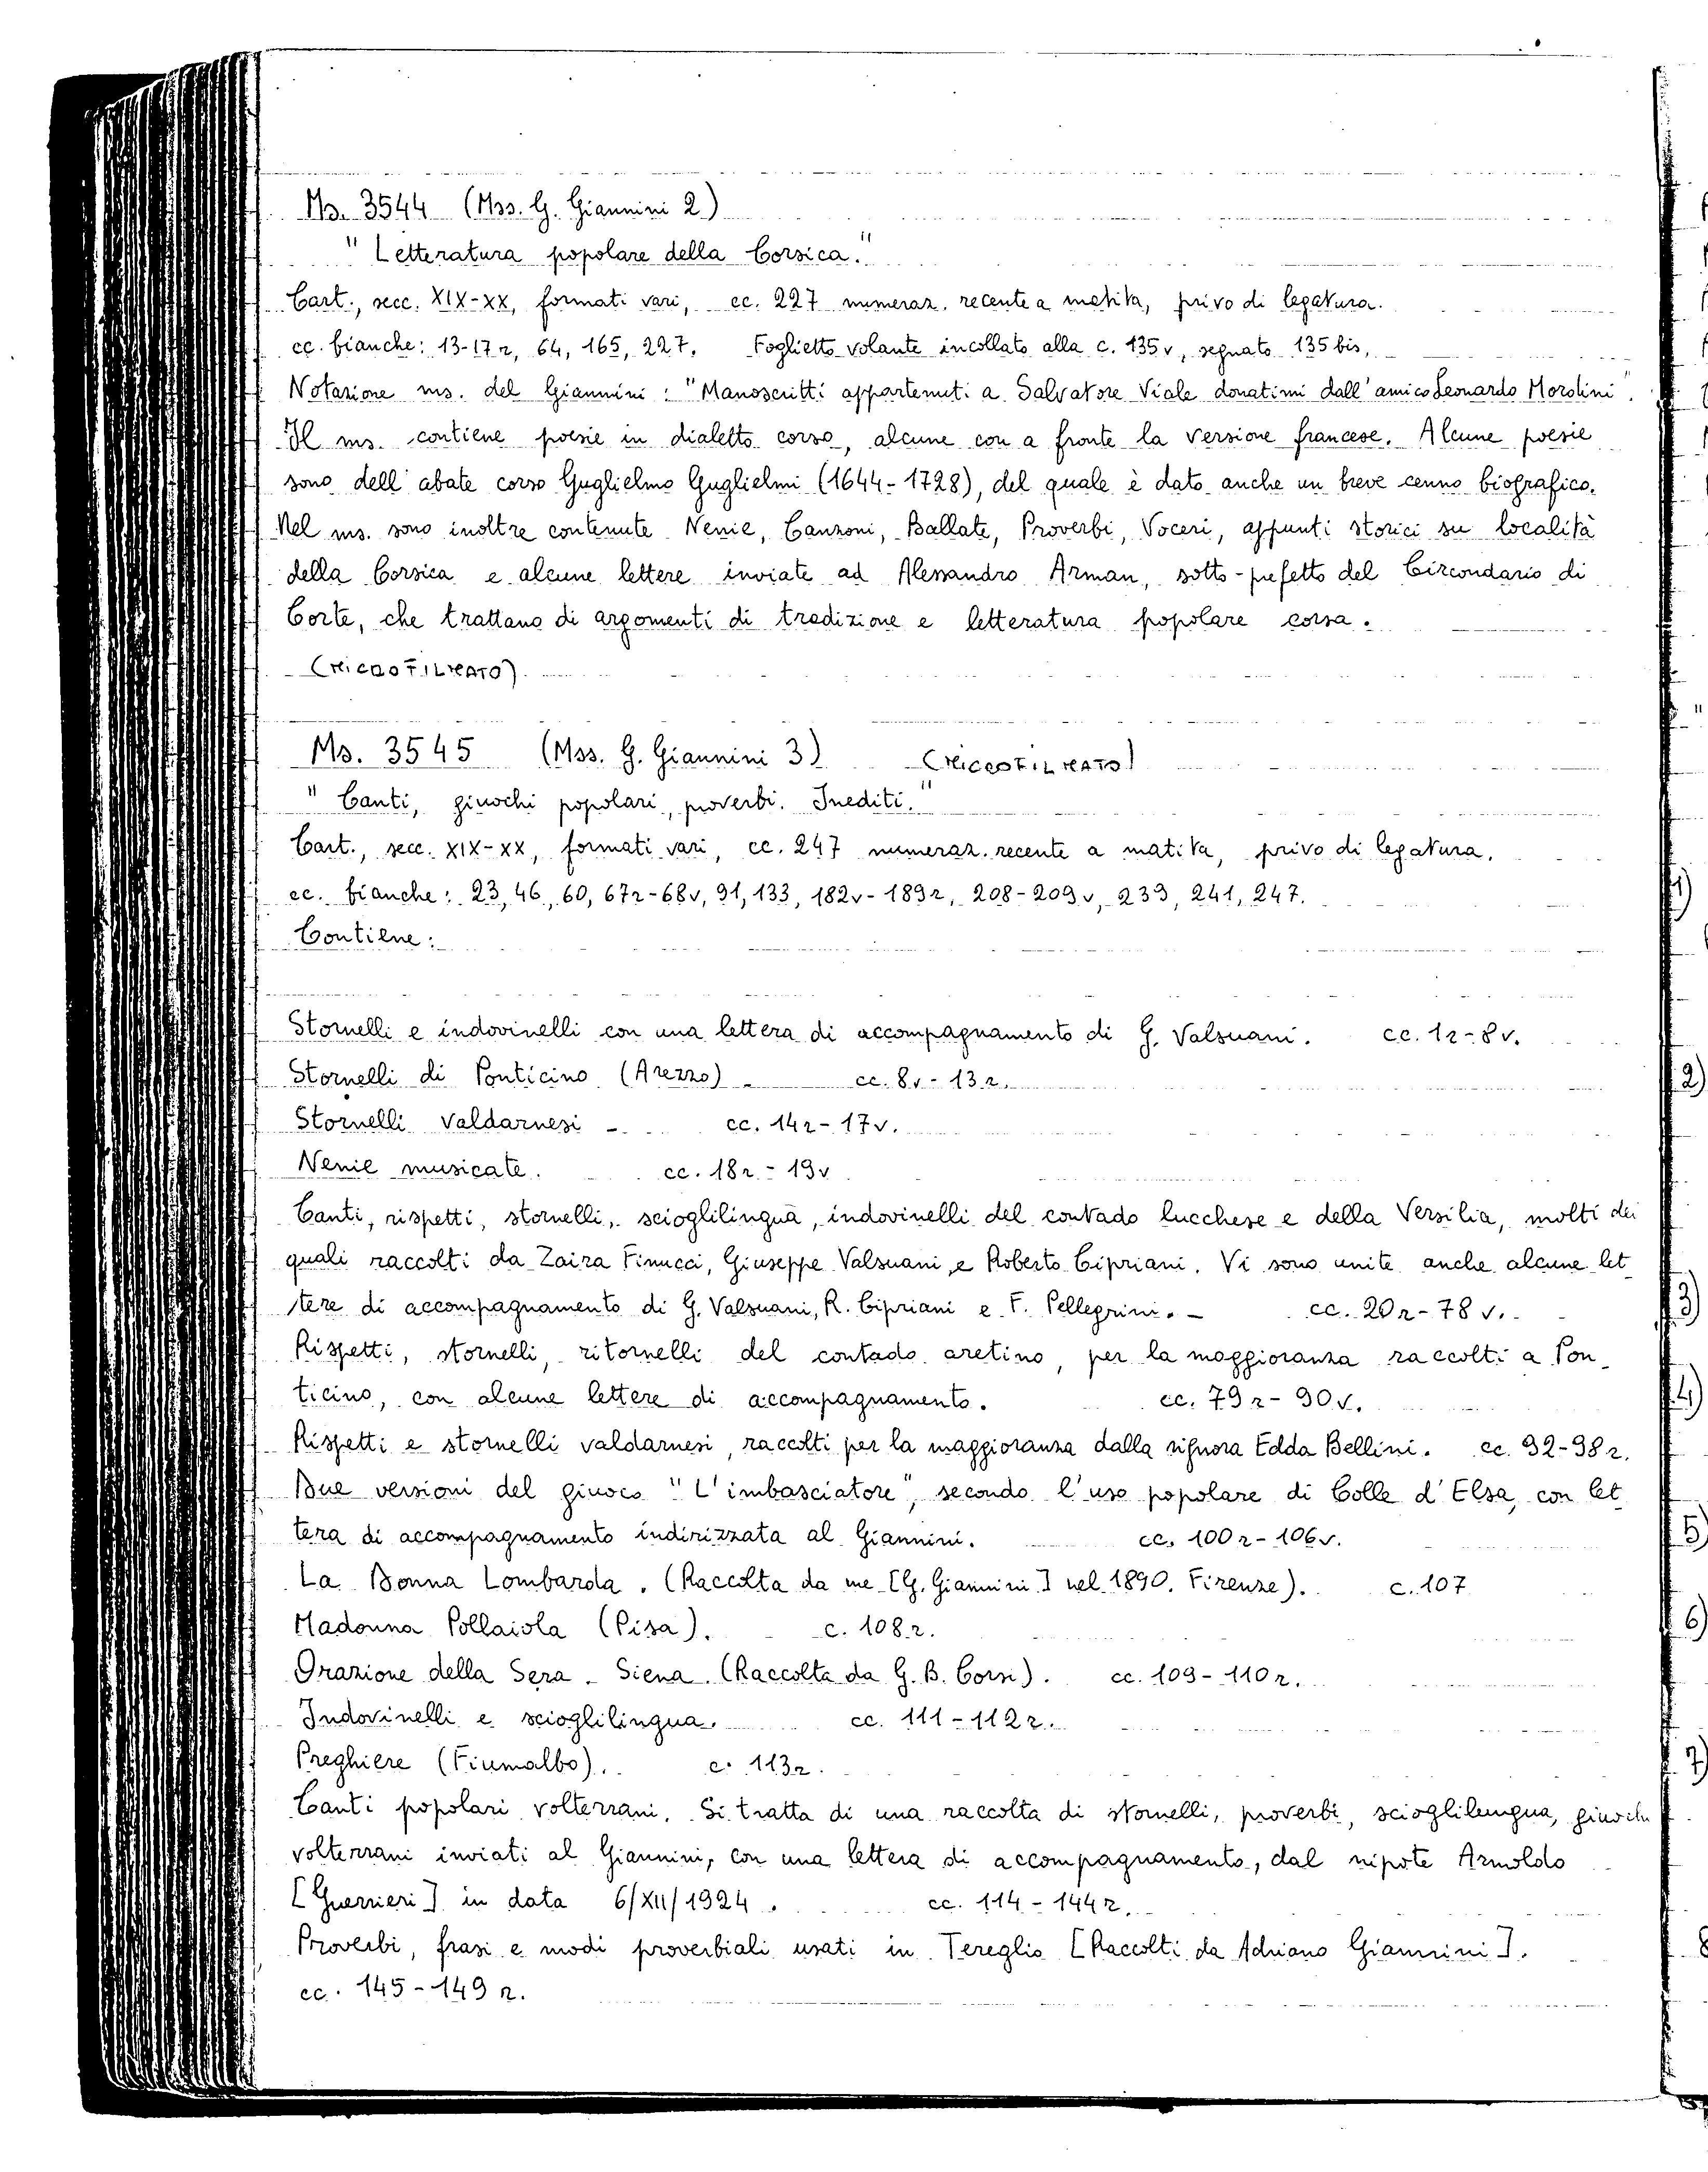 Ms. 3544 (Mss. G. Giannini 2)
"Letteratura popolare della Corsica."
Cart., secc. XIX-XX, formati vari, cc. 227 numeraz. recente a matita, privo di legatura.
cc. bianche: 13-17r, 64, 165, 227. Foglietto volante incollato alla c. 135v, segnato 135 bis.
Notazione ms. del Giannini: "Manoscritti appartenuti a Salvatore Viale donatimi dall'amico Leonardo Mordini".
Il ms. contiene poesie in dialetto corso, alcune con a fronte la versione francese. Alcune poesie
sono dell'abate corso Guglielmo Guglielmi (1644-1728), del quale è dato anche un breve cenno biografico.
Nel ms. sono inoltre contenute Nenie, Canzoni, Ballate, Proverbi, Voceri, appunti storici su località
della Corsica e alcune lettere inviate ad Alessandro Arman, sotto-prefetto del Circondario di
Corte, che trattano di argomenti di tradizione e letteratura popolare corsa.
(MICROFILMATO)
Ms. 3545 (Mss. G. Giannini 3) (MICROFILMATO)
"Canti, giuochi popolari, proverbi. Inediti."
Cart., secc. XIX-XX, formati vari, cc. 247 numeraz. recente a matita, privo di legatura.
cc. bianche: 23, 46, 60, 67r-68v, 91, 133, 182v-189r, 208-209v, 239, 241, 247.
Contiene:
Stornelli e indovinelli con una lettera di accompagnamento di G. Valsuani. cc. 1r-8v.
Stornelli di Ponticino (Arezzo). cc. 8v-13r.
Stornelli valdarnesi - cc. 14r-17v.
Nenie musicate. cc. 18r-19v
Canti, rispetti, stornelli, scioglilingua, indovinelli del contado lucchese e della Versilia, molti dei
quali raccolti da Zaira Finucci, Giuseppe Valsuani, e Roberto Cipriani. Vi sono unite anche alcune let-
tere di accompagnamento di G. Valsuani, R. Cipriani e F. Pellegrini. - cc. 20r-78v.
Rispetti, stornelli, ritornelli del contado aretino, per la maggioranza raccolti a Pon-
ticino, con alcune lettere di accompagnamento. cc. 79r-90v.
Rispetti e stornelli valdarnesi, raccolti per la maggioranza dalla signora Edda Bellini. cc. 92-98r.
Due versioni del giuoco "L'imbasciatore", secondo l'uso popolare di Colle d'Elsa, con let-
tera di accompagnamento indirizzata al Giannini. cc. 100r-106v.
La Donna Lombarda. (Raccolta da me [G. Giannini] nel 1890. Firenze). c. 107
Madonna Pollaiola (Pisa). c. 108r.
Orazione della Sera. Siena. (Raccolta da G. B. Corsi). cc. 109-110r.
Indovinelli e scioglilingua. cc. 111-112r.
Preghiere (Fiumalbo). c. 113r.
Canti popolari volterrani. Si tratta di una raccolta di stornelli, proverbi, scioglilingua, giuochi
volterrani inviati al Giannini, con una lettera di accompagnamento, dal nipote Arnoldo
[Guerrieri] in data 6/XII/1924. cc. 114-144r.
Proverbi, frasi e modi proverbiali usati in Tereglio [Raccolti da Adriano Giannini].
cc. 145-149r.
1)
2)
3)
4)
5)
6)
7)
8